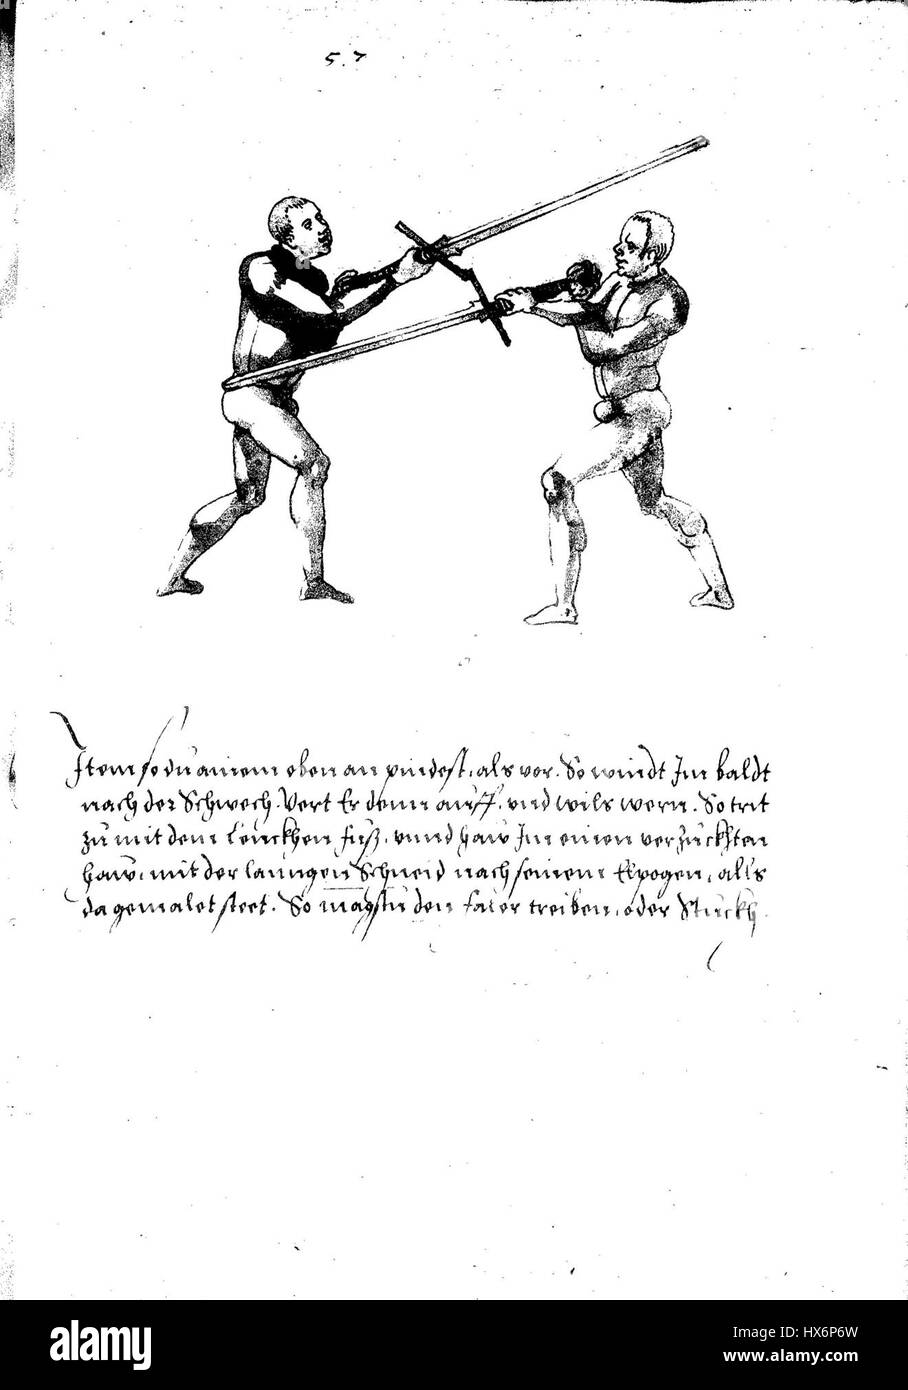 5.7
Item so du ainem oben an pindest, als vor. So windt Im baldt
nach der Schwech. Vert Er denn auff, und wils wern. So trit
zů mit dem linckhen fuß, unnd haw Im einen verzuckhten
haw, mit der lanngen Schneid nach seinem Elpogen, alls
da gemalet steet. So magstu den faler treiben, oder Stuckh.
a
alamy
Image ID: HX6P6W
www.alamy.com